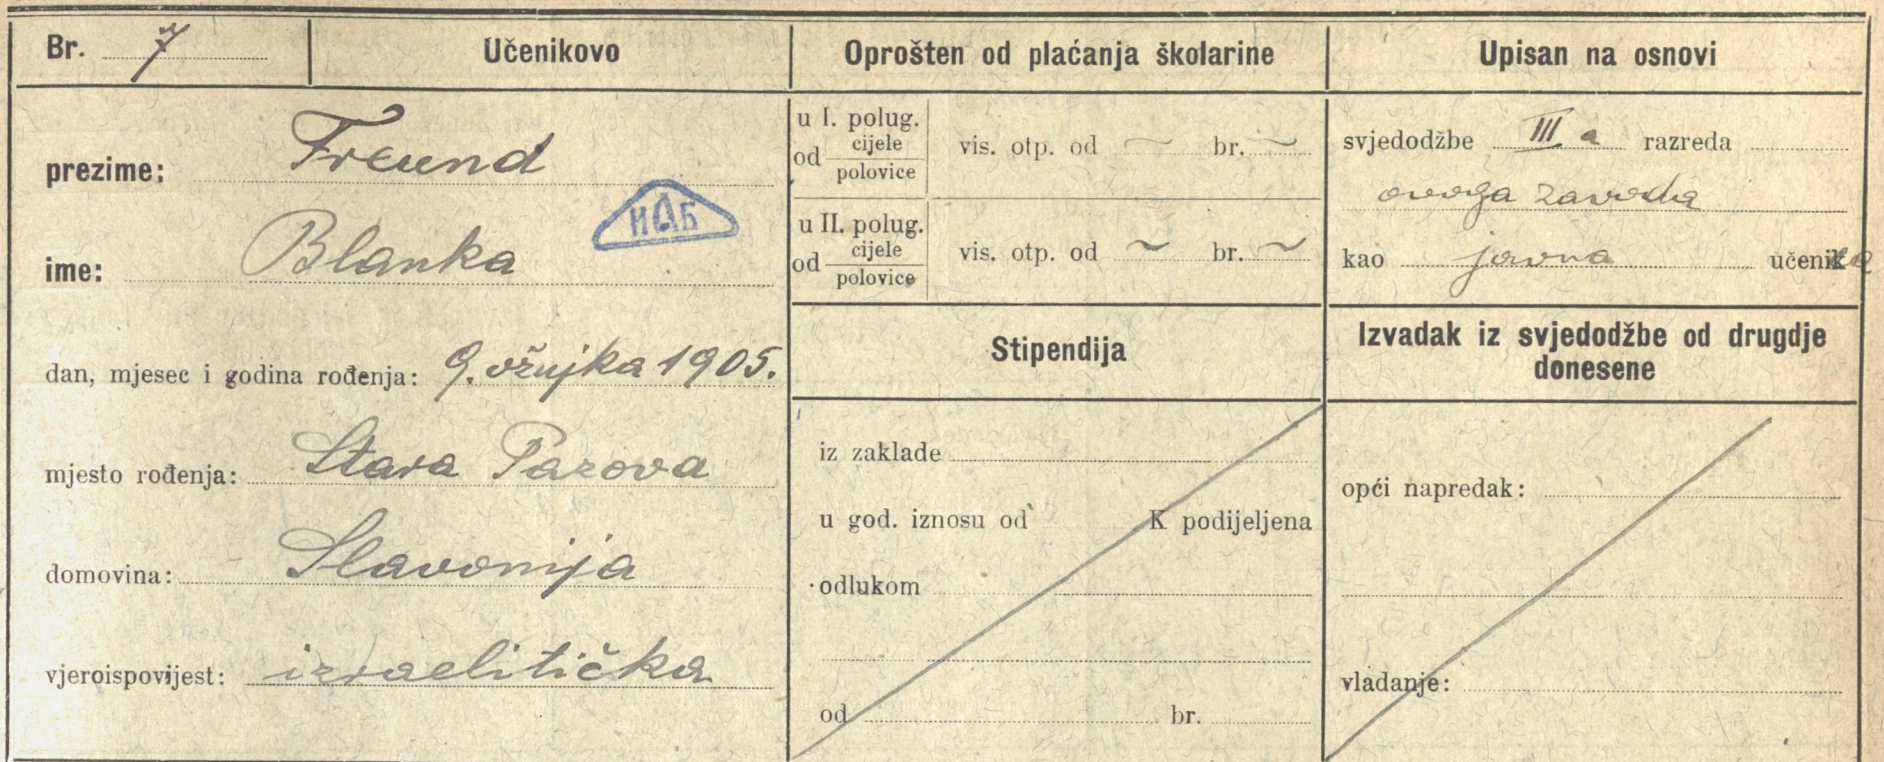 Br. 7
Učenikovo
prezime: Freund
ime: Blanka
ИАБ
dan, mjesec i godina rođenja: 9. ožujka 1905.
mjesto rođenja: Stara Pazova
domovina: Slavonija
vjeroispovijest: izraelitička
Oprošten od plaćanja školarine
u I. polug.
od cijele polovice vis. otp. od ~ br. ~
u II. polug.
od cijele polovice vis. otp. od ~ br. ~
Stipendija
iz zaklade
u god. iznosu od K podijeljena
odlukom
od br.
Upisan na osnovi
svjedodžbe III a razreda
ovoga zavoda
kao javna učenika
Izvadak iz svjedodžbe od drugdje
donesene
opći napredak:
vladanje: